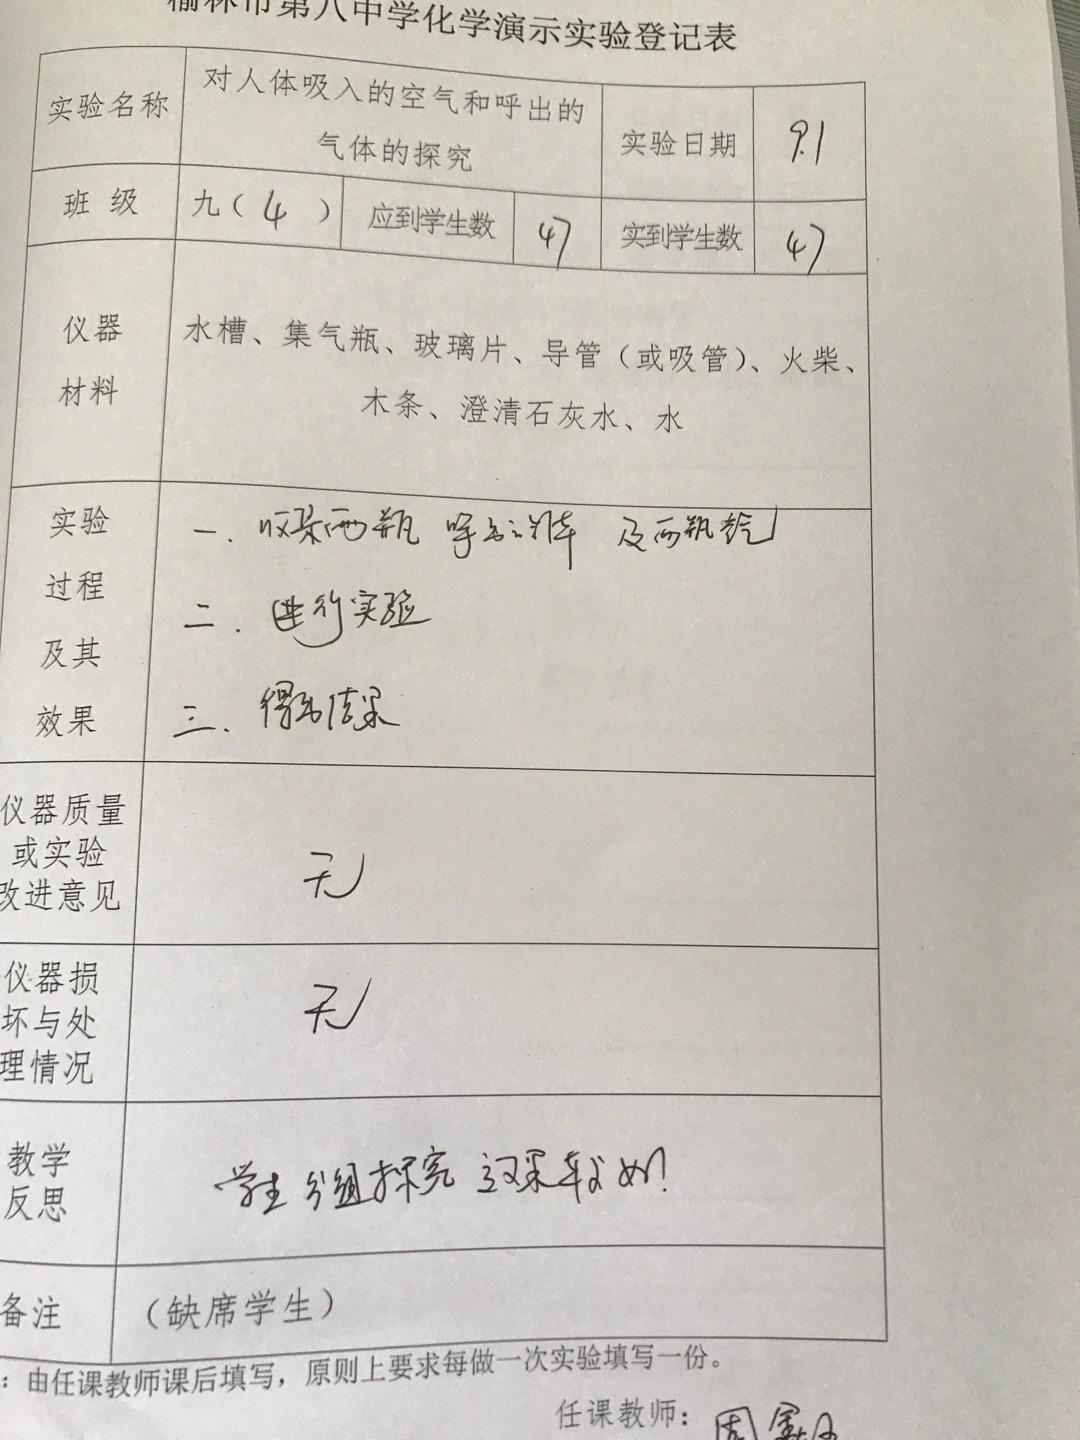 榆林市第八中学化学演示实验登记表
实验名称
对人体吸入的空气和呼出的
气体的探究
实验日期
9.1
班 级
九（4）
应到学生数
47
实到学生数
47
仪器
材料
水槽、集气瓶、玻璃片、导管（或吸管）、火柴、
木条、澄清石灰水、水
实验
过程
及其
效果
一. 收集两瓶 呼出 及两瓶空气
二. 进行实验
三. 得出结果
仪器质量
或实验
改进意见
无
仪器损
坏与处
理情况
无
教学
反思
学生分组探究 效果较好！
备注
（缺席学生）
：由任课教师课后填写，原则上要求每做一次实验填写一份。
任课教师：周